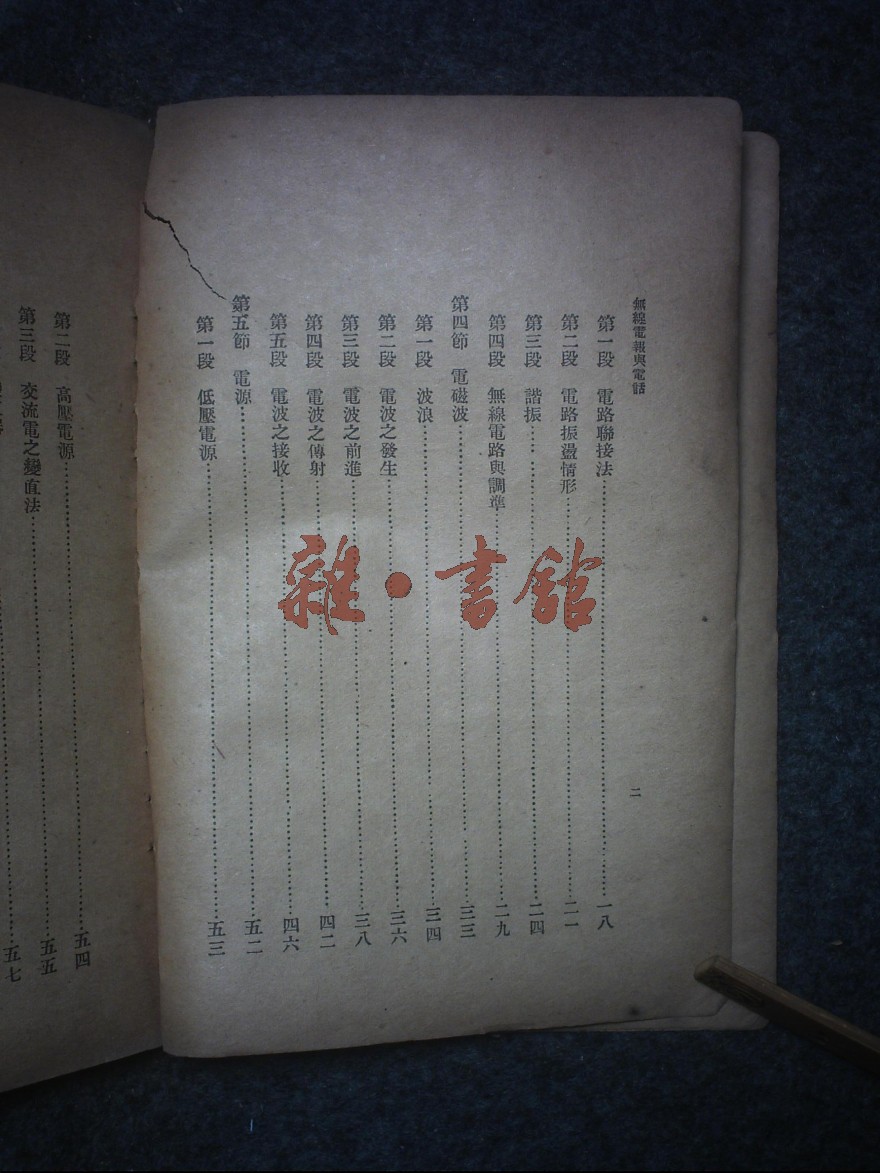 無線電報與電話
二
第一段 電路聯接法 一八
第二段 電路振盪情形 二一
第三段 諧振 二四
第四段 無線電路與調準 二九
第四節 電磁波 三三
第一段 波浪 三四
第二段 電波之發生 三六
第三段 電波之前進 三八
第四段 電波之傳射 四二
第五段 電波之接收 四六
第五節 電源 五二
第一段 低壓電源 五三
第二段 高壓電源 五四
第三段 交流電之變直法 五五
五七
雜·書館